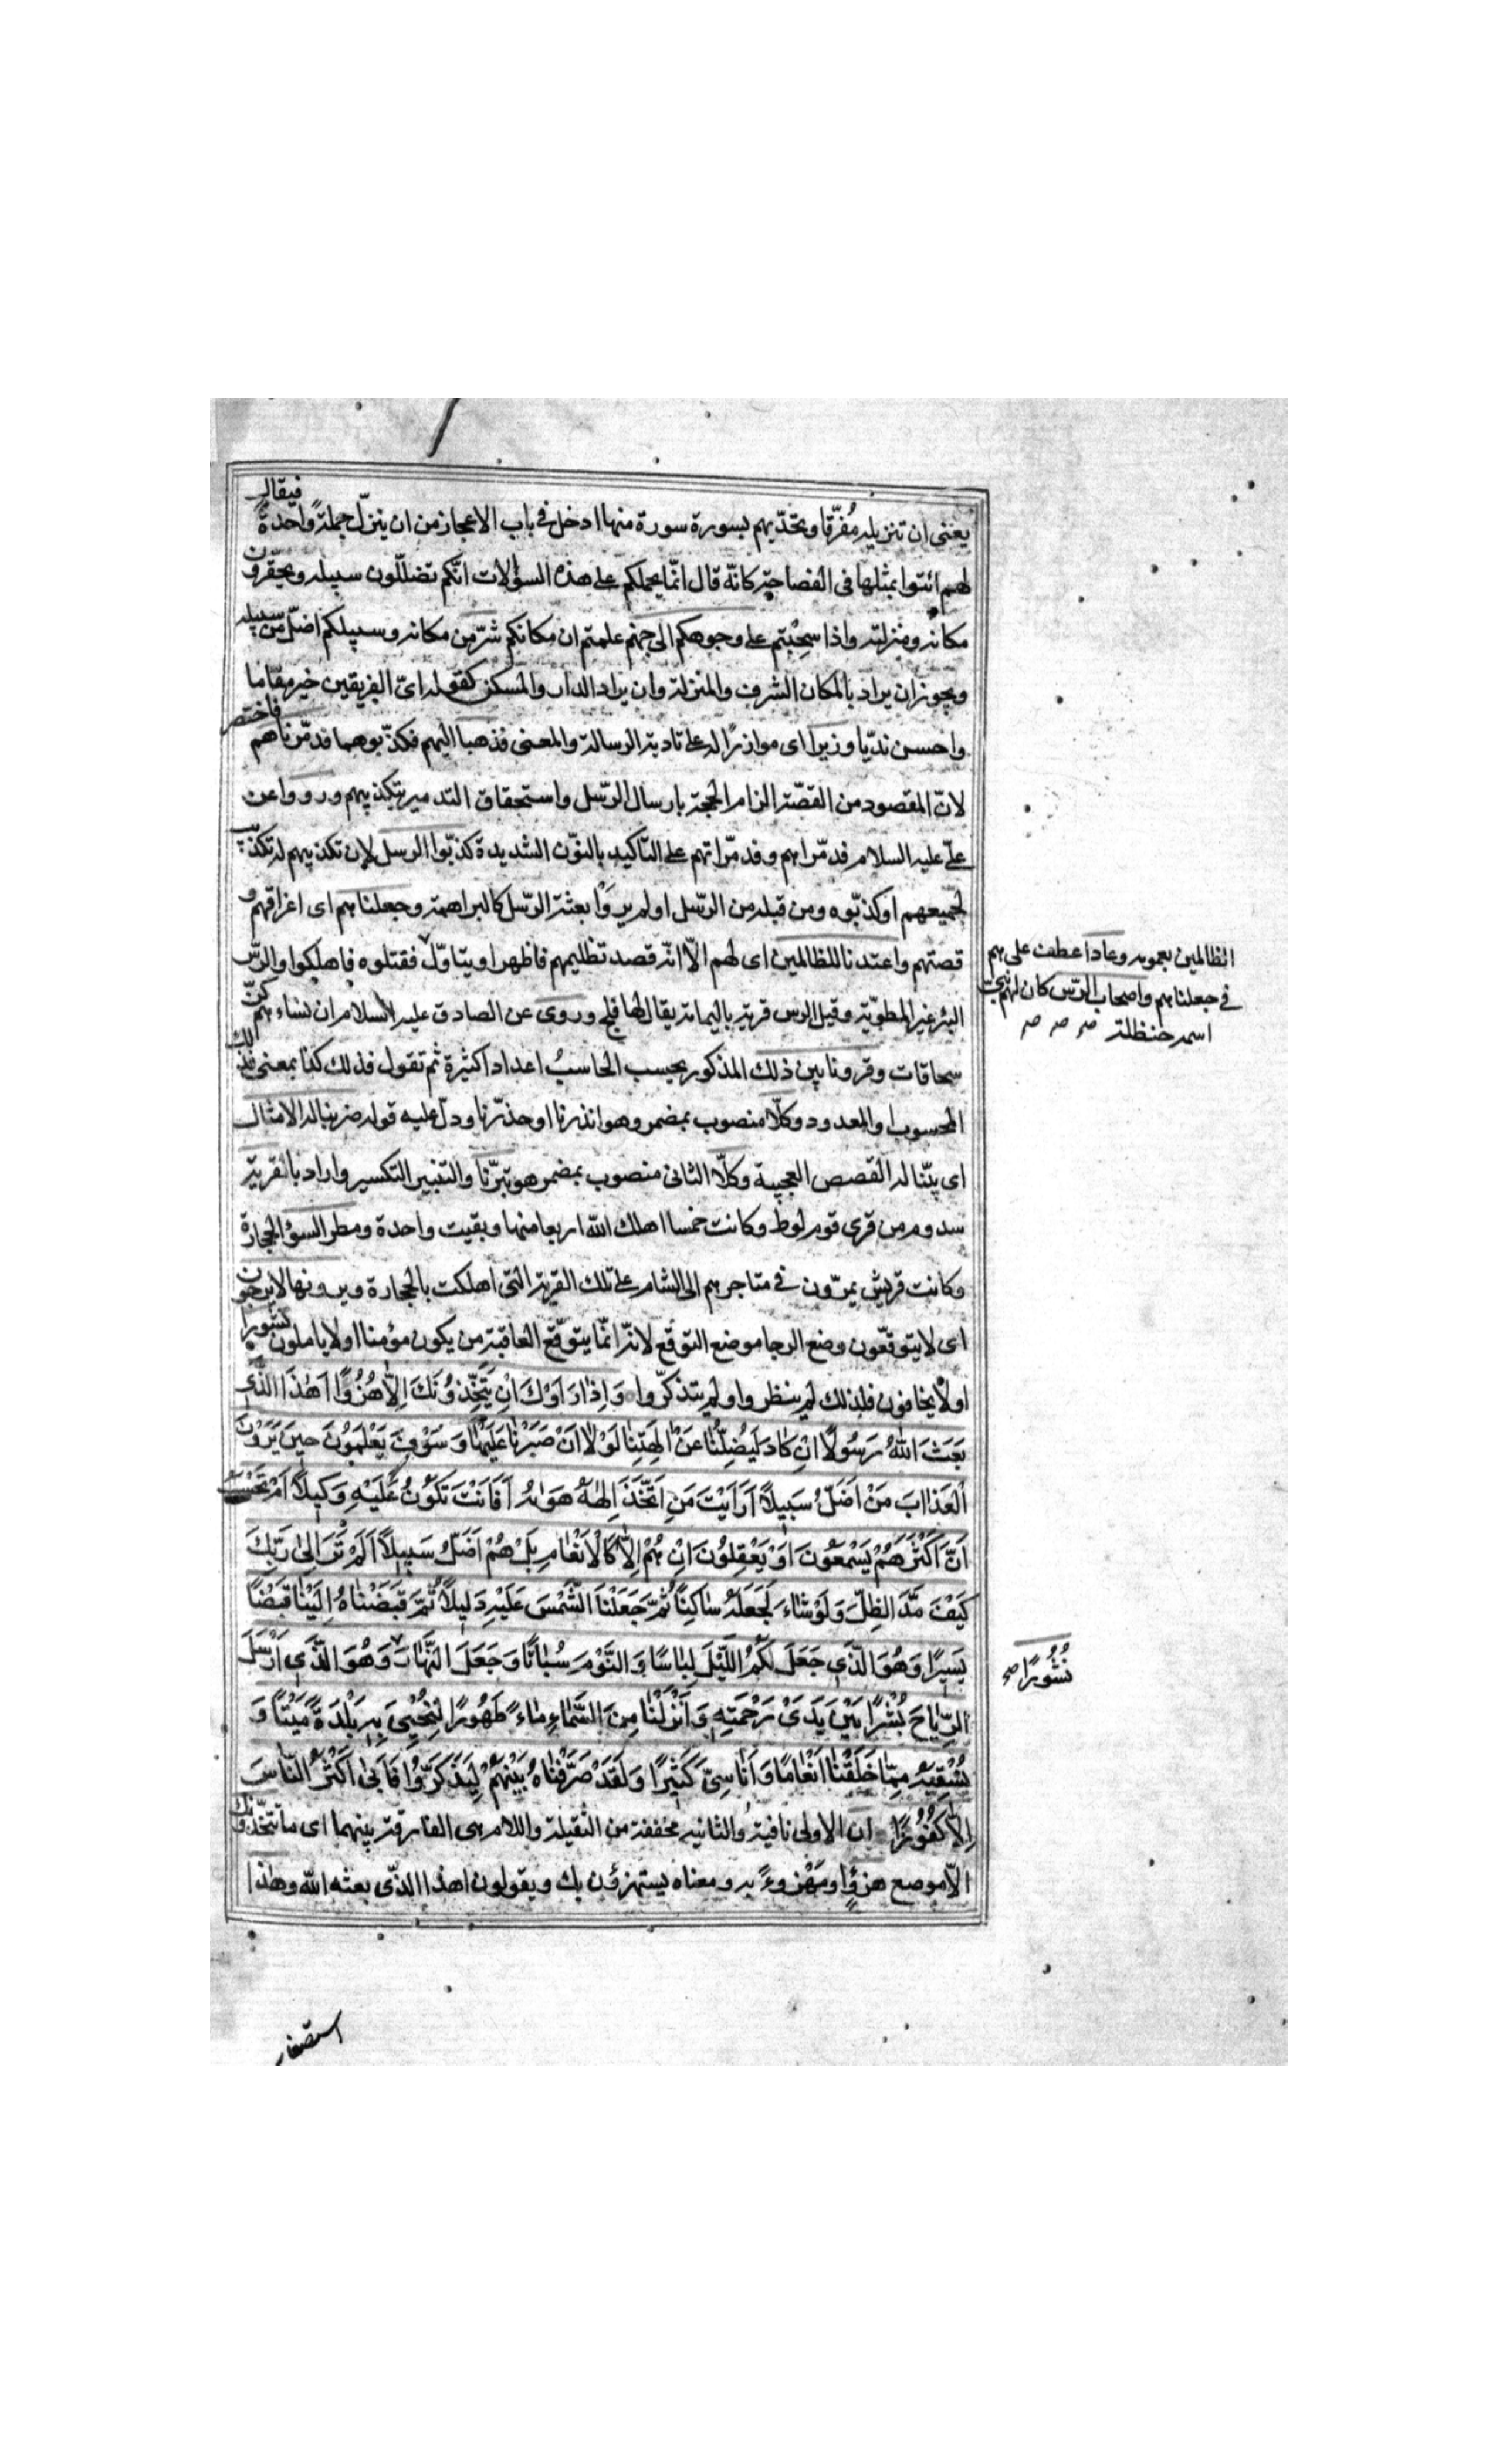 يعنى ان تنزيله مُفرّقا وتحدّيهم بسورة سورة منها ادخل فى باب الاعجاز من ان ينزل جملةً واحدةً فيقال
لهم ائتوا بمثلها فى الفصاحة كانّه قال انّما يحملكم على هذه السؤالات انّكم تضلّلون سبيله ويحقرون
مكانه ومنزلته واذا سحبتم على وجوهكم الى جهنم علمتم ان مكانكم شرّ من مكانه وسبيلكم اضلّ من سبيله
ويجوز ان يراد بالمكان الشرف والمنزلة وان يراد الدار والمسكن كقوله اىّ الفريقين خير مقاما
واحسن نديّا وزيرا اى موازرًا له على تادية الرسالة والمعنى فذهبا اليهم فكذّبوهما فدمّرناهم فاختصر
لانّ المقصود من القصّة الزام الحجة بارسال الرّسل واستحقاق التدمير بتكذيبهم ورووا عن
علىّ عليه السلام فدمّراهم وفدمّرانّهم على التاكيد بالنوّن الشديدة كذبّوا الرسل لان تكذيبهم له تكذيب
لجميعهم او كذبّوه ومن قبله من الرّسل او لم يروا بعثة الرّسل كالبراهمة وجعلناهم اى اغراقهم و
قصتهم واعتدنا للظالمين اى لهم الاّ انّه قصد تظليمهم فاظهر او يتاوّل فقتلوه فاهلكوا والرّس
البئر غير المطويّة وقيل الرس قرية باليمامة يقال لها فلج وروى عن الصادق عليه السلام ان نساءهم كنّ
سحاقات وقرونا بين ذلك المذكور يحسب الحاسبُ اعدادا كثيرة ثم تقول فذلك كذا بمعنى فذلك
المحسوب او المعدود وكلّا منصوب بمضمر وهو انذرنا او حذرّنا ودلّ عليه قوله ضربنا له الامثال
اى بيّنا له القصص العجيبة وكلّا الثانى منصوب بمضمر هو تبرّنا والتتبير التكسير واراد بالقرية
سدوم من قرى قوم لوط وكانت خمسا اهلك اللّه اربعا منها وبقيت واحدة ومطر السوء الحجارة
وكانت قريش يمرّون فى متاجرهم الى الشام على تلك القرية التى اهلكت بالحجارة ويرونها لا يرجون
اى لا يتوقّعون وضع الرجا موضع التوقع لانّه انّما يتوقّع العاقبة من يكون مؤمنا او لا ياملون نشورا
او لا يخافون فلذلك لم ينظروا ولم يتذكّروا وَاِذَا رَاَوْكَ اِنْ يَتَّخِذُونَكَ اِلاّٰ هُزُوًا اَهٰذَا الَّذِى
بَعَثَ اللّٰهُ رَسُولًا اِنْ كَادَ لَيُضِلُّنَا عَنْ اٰلِهَتِنَا لَوْلَا اَنْ صَبَرْنَا عَلَيْهَا وَسَوْفَ يَعْلَمُونَ حِينَ يَرَوْنَ
الْعَذَابَ مَنْ اَضَلُّ سَبِيلًا اَرَاَيْتَ مَنِ اتَّخَذَ اِلٰهَهُ هَوٰيهُ اَفَاَنْتَ تَكُونُ عَلَيْهِ وَكِيلًا اَمْ تَحْسَبُ
اَنَّ اَكْثَرَهُمْ يَسْمَعُونَ اَوْ يَعْقِلُونَ اِنْ هُمْ اِلاّٰ كَالْاَنْعَامِ بَلْ هُمْ اَضَلُّ سَبِيلًا اَلَمْ تَرَ اِلىٰ رَبِّكَ
كَيْفَ مَدَّ الظِّلَّ وَلَوْ شَاءَ لَجَعَلَهُ سَاكِنًا ثُمَّ جَعَلْنَا الشَّمْسَ عَلَيْهِ دَلِيلًا ثُمَّ قَبَضْنَاهُ اِلَيْنَا قَبْضًا
يَسِيرًا وَهُوَ الَّذِى جَعَلَ لَكُمُ اللَّيْلَ لِبَاسًا وَالنَّوْمَ سُبَاتًا وَجَعَلَ النَّهَارَ وَهُوَ الَّذِى اَرْسَلَ
الرِّيَاحَ بُشْرًا بَيْنَ يَدَىْ رَحْمَتِهِ وَاَنْزَلْنَا مِنَ السَّمَاءِ مَاءً طَهُورًا لِنُحْيِىَ بِهِ بَلْدَةً مَيْتًا وَ
نُسْقِيَهُ مِمَّا خَلَقْنَا اَنْعَامًا وَاَنَاسِىَّ كَثِيرًا وَلَقَدْ صَرَّفْنَاهُ بَيْنَهُمْ لِيَذَّكَّرُوا فَاَبىٰ اَكْثَرُ النَّاسِ
اِلاّٰ كُفُورًا ان الاولى نافية والثانيه مخففة من الثقيلة واللام هى الفارقة بينهما اى ما يتخذونك
الاّ موضع هزؤٍ او مَهْزوءً به ومعناه يستهزؤن بك ويقولون اهذا الذّى بعثه اللّه وهذا
الظالمين بعمومه وعادا عطف على هم
فى جعلناهم واصحاب الرّس كان لهم نبىّ
اسمه حنظلة صح صح صح
نُشُورًا صح
استصغار